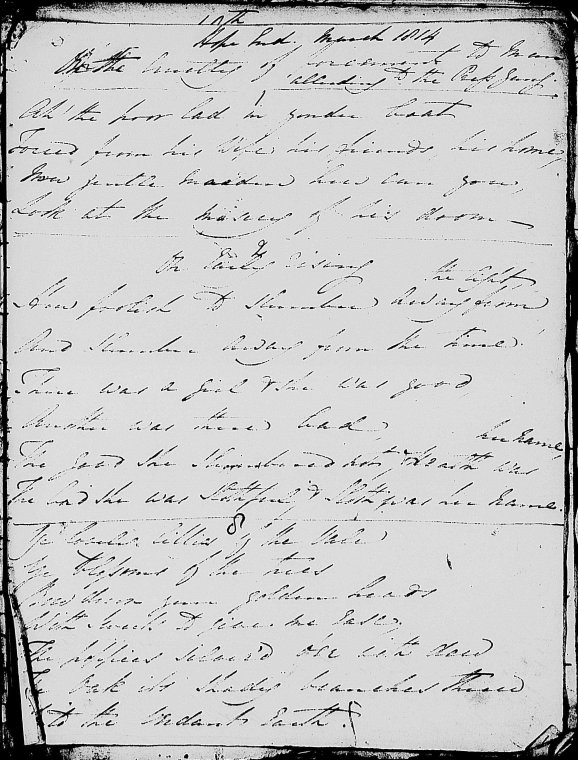 Hope End, March 1814
On the Cruelty of forcement to Man
alluding to the Press Gang.
Ah! the poor lad in yonder boat
Forced from his Wife, his friends, his home,
Now gentle Maiden how can you,
Look at the misery of his doom
7
On Early rising
How foolish to slumber away from the light
And slumber away from the time
There was a girl & she was good
Another was there bad,
The good she slumbered not, Health was her name,
The bad she was slothful, & Sloth was her name.
8
Ye lovely lillies of the Vale
Ye blossoms of the trees
Bow down your golden heads
to give me Ease,
The poppies o'er with dew
The Oak its shady branches
to the verdant Earth